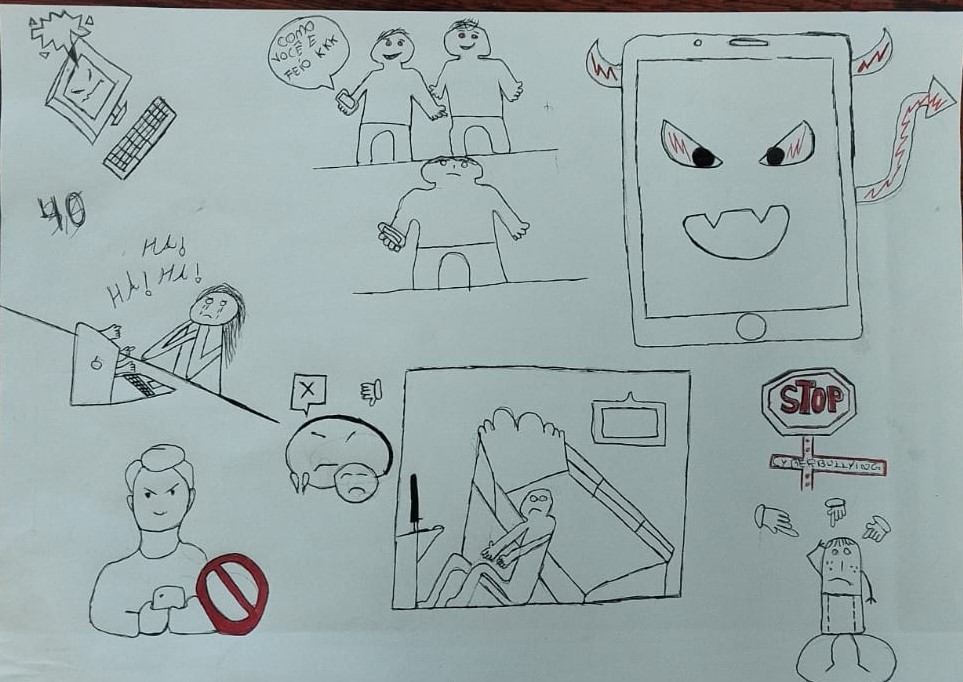 COMO
VOCÊ E
FEIO KKK
40
HA!
HA! HA!
X
STOP
CYBERBULLYING